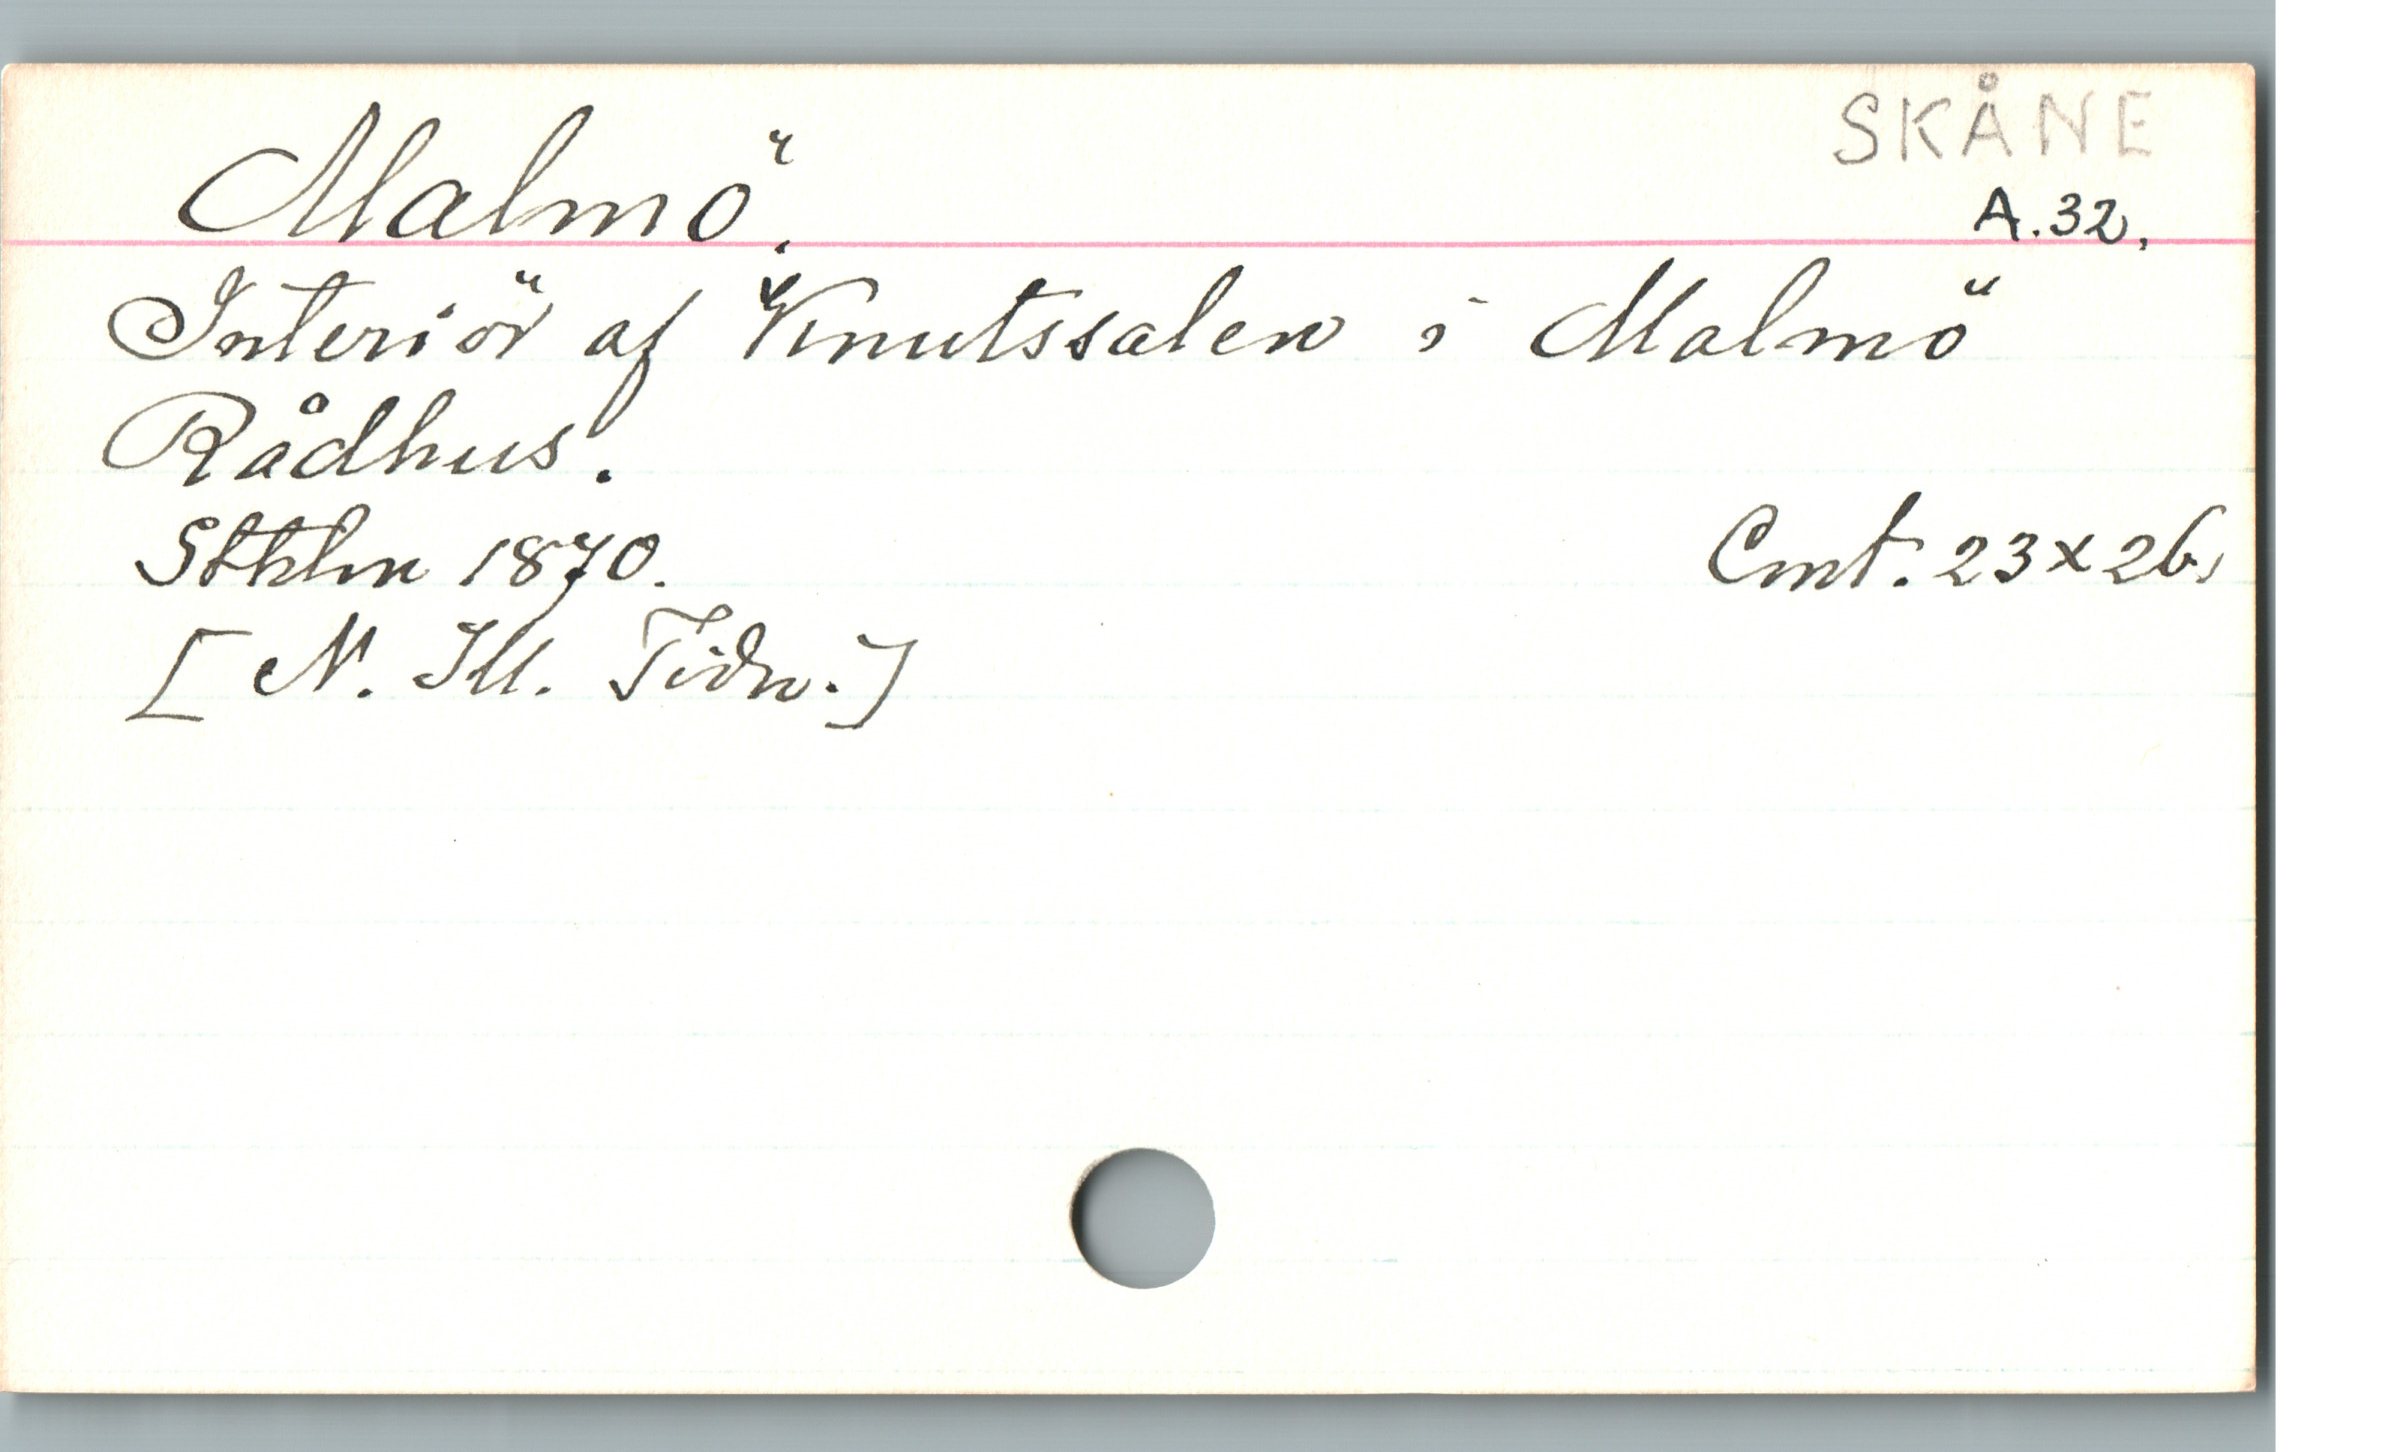 SKÅNE
Malmö.
A.32.
Interiör af Knutssalen i Malmö
Rådhus.
Sthlm 1870. Cmt. 23x26.
[N. Ill. Tidn.]